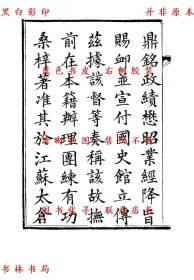 黑白影印
並非原本
鼎銘政績懋昭業經降旨
賜卹並宣付國史館立傳
茲據該督等奏稱該故撫
前在本籍辦理團練有功
桑梓著准其於江蘇太倉
书林书局